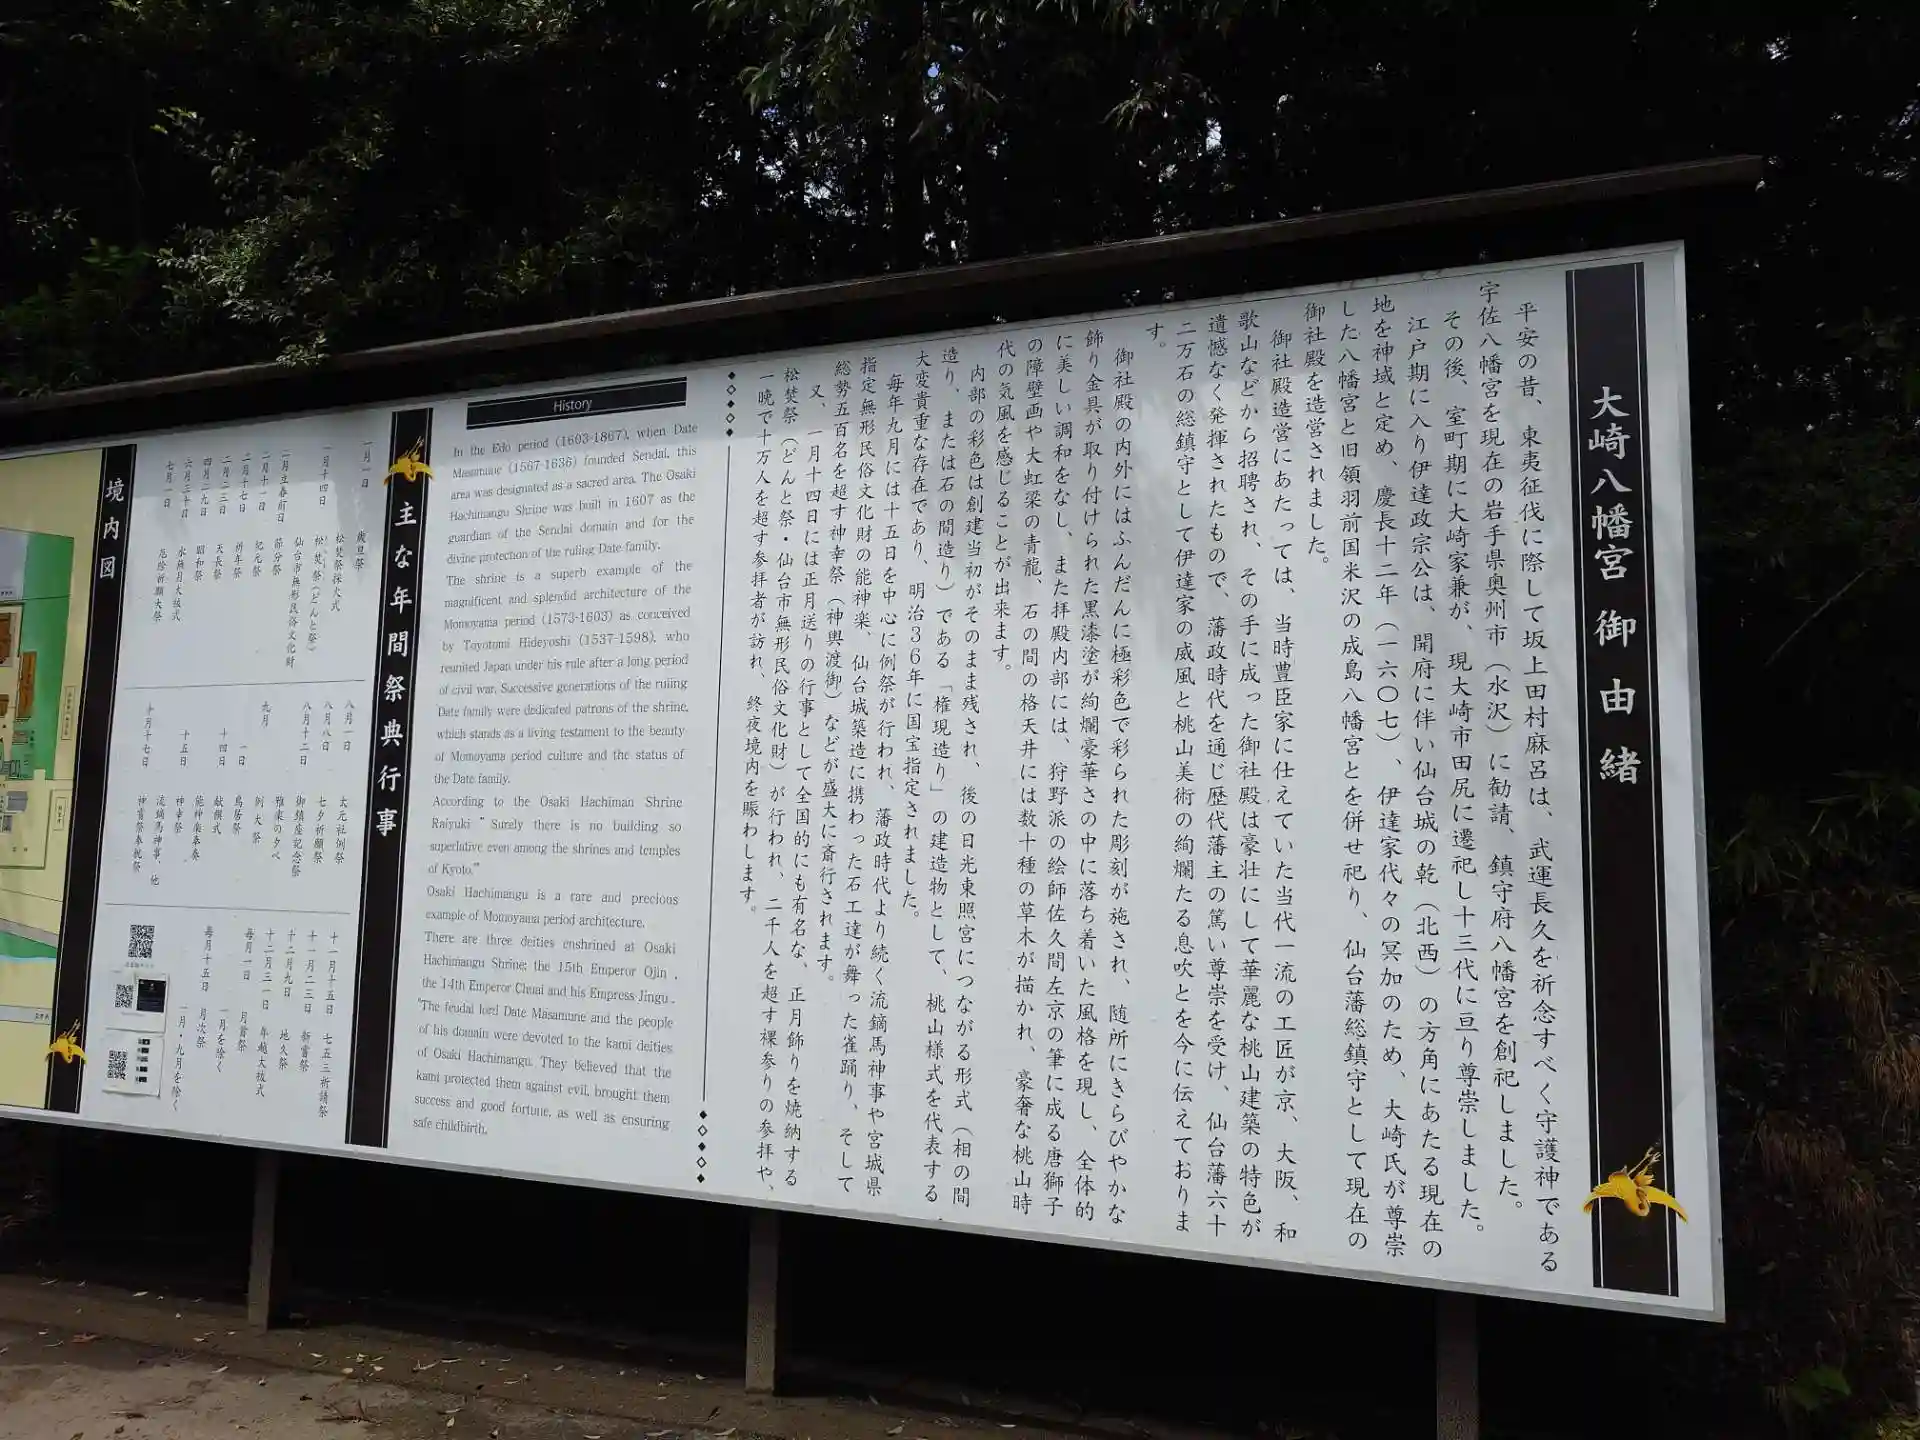 大崎八幡宮 御由緒
平安の昔、東夷征伐に際して坂上田村麻呂は、武運長久を祈念すべく守護神である
宇佐八幡宮を現在の岩手県奥州市（水沢）に勧請、鎮守府八幡宮を創祀しました。
その後、室町期に大崎家兼が、現大崎市田尻に遷祀し十三代に亘り尊崇しました。
江戸期に入り伊達政宗公は、開府に伴い仙台城の乾（北西）の方角にあたる現在の
地を神域と定め、慶長十二年（一六〇七）、伊達家代々の冥加のため、大崎氏が尊崇
した八幡宮と旧領羽前国米沢の成島八幡宮とを併せ祀り、仙台藩総鎮守として現在の
御社殿を造営されました。
御社殿造営にあたっては、当時豊臣家に仕えていた当代一流の工匠が京、大阪、和
歌山などから招聘され、その手に成った御社殿は豪壮にして華麗な桃山建築の特色が
遺憾なく発揮されたもので、藩政時代を通じ歴代藩主の篤い尊崇を受け、仙台藩六十
二万石の総鎮守として伊達家の威風と桃山美術の絢爛たる息吹とを今に伝えておりま
す。
御社殿の内外にはふんだんに極彩色で彩られた彫刻が施され、随所にきらびやかな
飾り金具が取り付けられた黒漆塗が絢爛豪華さの中に落ち着いた風格を現し、全体的
に美しい調和をなし、また拝殿内部には、狩野派の絵師佐久間左京の筆に成る唐獅子
の障壁画や大虹梁の青龍、石の間の格天井には数十種の草木が描かれ、豪奢な桃山時
代の気風を感じることが出来ます。
内部の彩色は創建当初がそのまま残され、後の日光東照宮につながる形式（相の間
造り、または石の間造り）である「権現造り」の建造物として、桃山様式を代表する
大変貴重な存在であり、明治36年に国宝指定されました。
毎年九月には十五日を中心に例祭が行われ、藩政時代より続く流鏑馬神事や宮城県
指定無形民俗文化財の能神楽、仙台城築造に携わった石工達が舞った雀踊り、そして
総勢五百名を超す神幸祭（神輿渡御）などが盛大に斎行されます。
又、一月十四日には正月送りの行事として全国的にも有名な、正月飾りを焼納する
松焚祭（どんと祭・仙台市無形民俗文化財）が行われ、二千人を超す裸参りの参拝や、
一晩で十万人を超す参拝者が訪れ、終夜境内を賑わします。
History
In the Edo period (1603-1867), when Date
Masamune (1567-1636) founded Sendai, this
area was designated as a sacred area. The Osaki
Hachimangu Shrine was built in 1607 as the
guardian of the Sendai domain and for the
divine protection of the ruling Date family.
The shrine is a superb example of the
magnificent and splendid architecture of the
Momoyama period (1573-1603) as conceived
by Toyotomi Hideyoshi (1537-1598), who
reunited Japan under his rule after a long period
of civil war. Successive generations of the ruling
Date family were dedicated patrons of the shrine,
which stands as a living testament to the beauty
of Momoyama period culture and the status of
the Date family.
According to the Osaki Hachiman Shrine
Raiyuki " Surely there is no building so
superlative even among the shrines and temples
of Kyoto."
Osaki Hachimangu is a rare and precious
example of Momoyama period architecture.
There are three deities enshrined at Osaki
Hachimangu Shrine: the 15th Emperor Ojin ,
the 14th Emperor Chuai and his Empress Jingu .
"The feudal lord Date Masamune and the people
of his domain were devoted to the kami deities
of Osaki Hachimangu. They believed that the
kami protected them against evil, brought them
success and good fortune, as well as ensuring
safe childbirth.
主な年間祭典行事
一月一日 歳旦祭
松焚祭採火式
一月十四日 松焚祭（どんと祭）
仙台市無形民俗文化財
二月立春前日 節分祭
二月十一日 紀元祭
二月十七日 祈年祭
二月二三日 天長祭
四月二九日 昭和祭
六月三十日 水無月大祓式
七月一日 厄除祈願大祭
八月一日 大元社例祭
八月八日 七夕祈願祭
八月十二日 御鎮座記念祭
雅楽の夕べ
九月 例大祭
一日 鳥居祭
献饌式
十四日 能神楽奉奏
十五日 神幸祭
流鏑馬神事、他
十月十七日 神嘗祭奉祝祭
十一月十五日 七五三祈請祭
十一月二三日 新嘗祭
十二月九日 地久祭
十二月三一日 年越大祓式
毎月一日 月首祭
一月を除く
毎月十五日 月次祭
一月・九月を除く
境内図